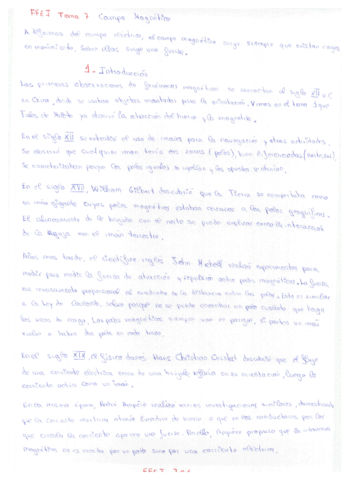 FFI I Tema 7 Campo Magnético
A diferencia del campo eléctrico, el campo magnético surge siempre que existan cargas
en movimiento. Sobre ellas surge una fuerza.
1.- Introducción
Las primeras observaciones de fenómenos magnéticos se remontan al siglo XII a.C
en China, donde se usaban objetos imantados para la orientación.
Tales de Mileto ya conocía la atracción del hierro y la magnetita.
En el siglo XII se extendió el uso de imanes para la navegación y otras actividades.
Se observó que cualquier imán tenía dos zonas (polos) bien diferenciadas (norte, sur)
Se caracterizaban porque los polos iguales se repelían y los opuestos se atraían.
En el siglo XVI, William Gilbert descubrió que la Tierra se comportaba como
un imán gigante cuyos polos magnéticos estaban cercanos a los polos geográficos.
El alineamiento de la brújula con el norte se puede explicar como la interacción
de la aguja con el imán terrestre.
Años más tarde, el científico inglés John Michell realizó experimentos para
medir la fuerza de atracción y repulsión entre polos magnéticos. La fuerza
es inversamente proporcional al cuadrado de la distancia entre los polos. Esto es similar
a la ley de Coulomb, salvo porque no se puede encontrar un polo aislado que haga
las veces de carga. Los polos magnéticos siempre van en parejas. Si partes un imán
vuelve a haber dos polos en cada trozo.
En el siglo XIX el físico danés Hans Christian Oersted descubrió que el flujo
de una corriente eléctrica cerca de una brújula influía en su orientación. Luego la
corriente actúa como un imán.
En la misma época, André Ampère realizó varias investigaciones similares, demostrando
que la corriente eléctrica atraía limaduras de hierro y que en dos conductores por los
que circula la corriente aparece una fuerza. Ampère propuso que la
magnético no es creado por un polo sino por una corriente eléctrica.